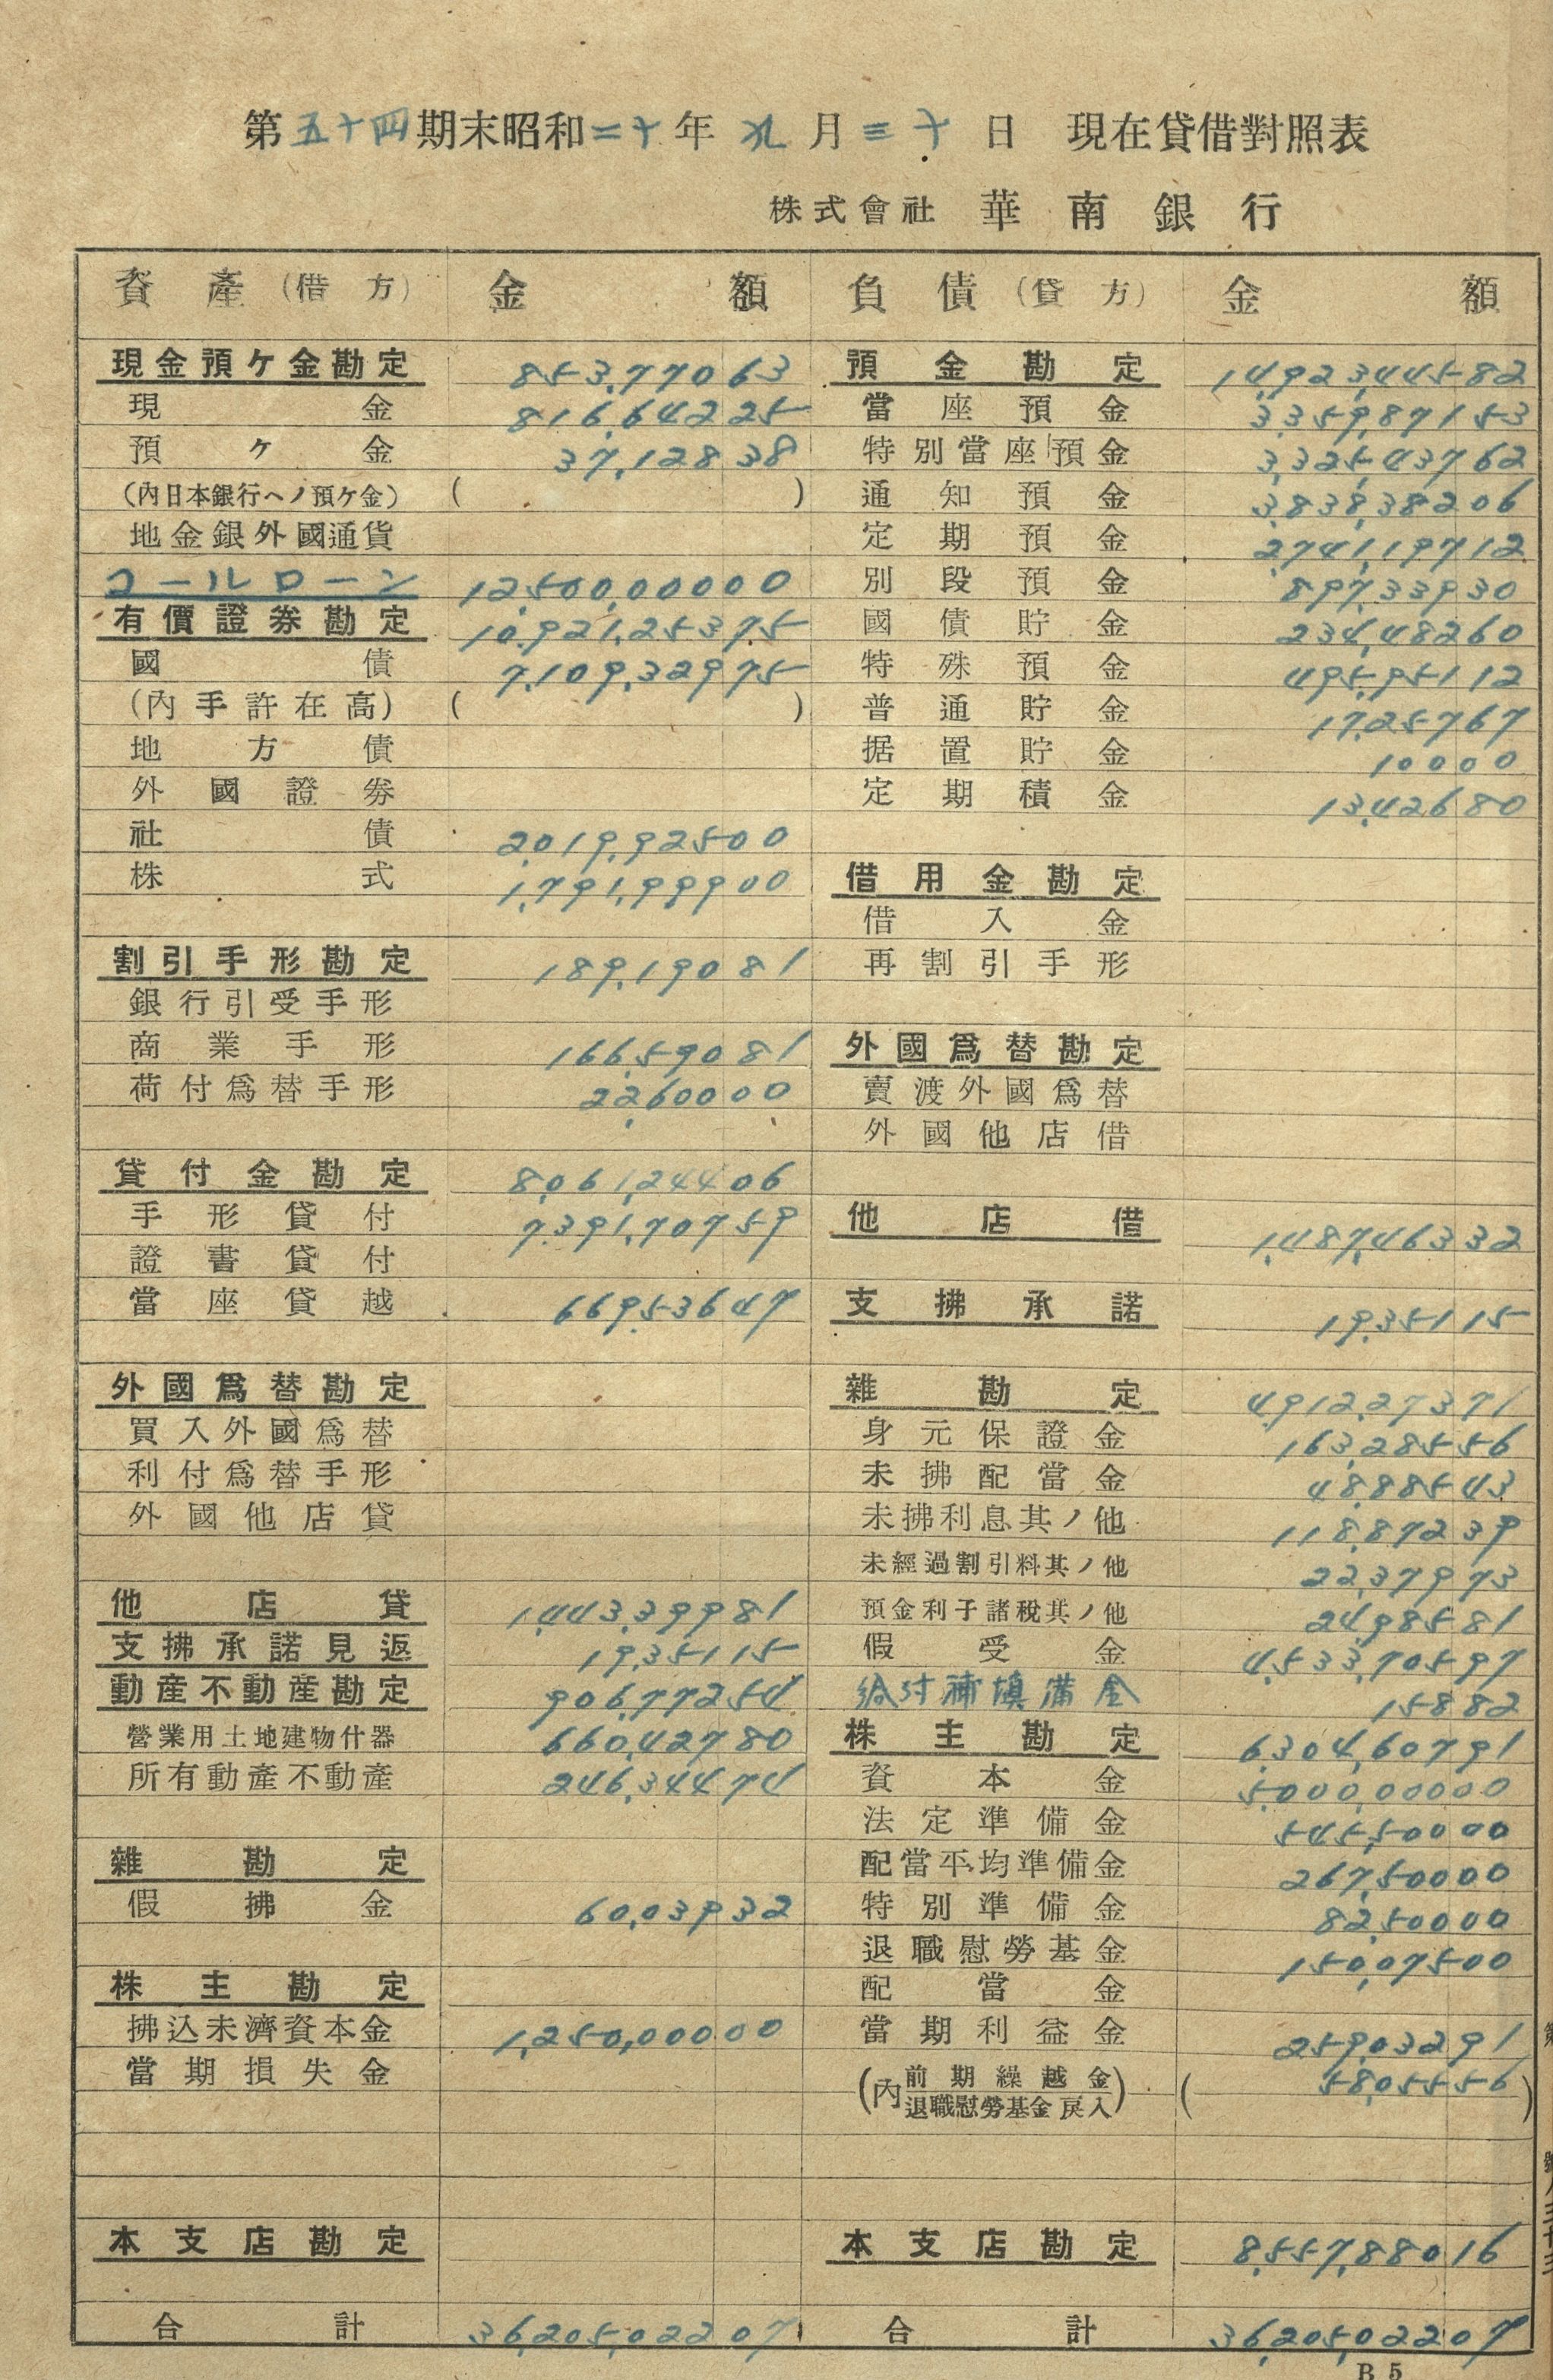 第五十四期末昭和二十年九月三十日 現在貸借對照表
株式會社 華南銀行
資產(借方) 金額
現金預ケ金勘定 853,770 63
現金 816,642 25
預ケ金 37,128 38
(內日本銀行ヘノ預ケ金) ( )
地金銀外國通貨
コールローン 12,500,000 00
有價證券勘定 10,921,253 75
國債 7,109,329 75
(內手許在高) ( )
地方債
外國證券
社債 2,019,925 00
株式 1,791,999 00
割引手形勘定 189,190 81
銀行引受手形
商業手形 166,590 81
荷付爲替手形 22,600 00
貸付金勘定 8,061,244 06
手形貸付 7,391,707 59
證書貸付
當座貸越 669,536 47
外國爲替勘定
買入外國爲替
利付爲替手形
外國他店貸
他店貸 1,443,399 81
支拂承諾見返 19,351 15
動産不動産勘定 906,772 54
營業用土地建物什器 660,427 80
所有動產不動產 246,344 74
雜勘定
假拂金 60,039 32
株主勘定
拂込未濟資本金 1,250,000 00
當期損失金
本支店勘定
合計 36,205,022 07
負債(貸方) 金額
預金勘定 14,923,445 82
當座預金 3,359,871 53
特別當座預金 3,325,437 62
通知預金 3,838,382 06
定期預金 2,741,197 12
別段預金 897,339 30
國債貯金 234,482 60
特殊預金 495,951 12
普通貯金 17,257 67
据置貯金 100 00
定期積金 13,426 80
借用金勘定
借入金
再割引手形
外國爲替勘定
賣渡外國爲替
外國他店借
他店借 1,487,463 32
支拂承諾 19,351 15
雜勘定 4,912,273 71
身元保證金 163,285 56
未拂配當金 48,885 43
未拂利息其ノ他 118,872 39
未經過割引料其ノ他 22,379 73
預金利子諸稅其ノ他 24,985 81
假受金 4,533,705 97
給付補塡備金 158 82
株主勘定 6,304,607 91
資本金 5,000,000 00
法定準備金 545,500 00
配當平均準備金 267,500 00
特別準備金 82,500 00
退職慰勞基金 150,075 00
配當金
當期利益金 259,032 91
(內前期繰越金 退職慰勞基金戾入) (58,055 56)
本支店勘定 8,557,880 16
合計 36,205,022 07
B5